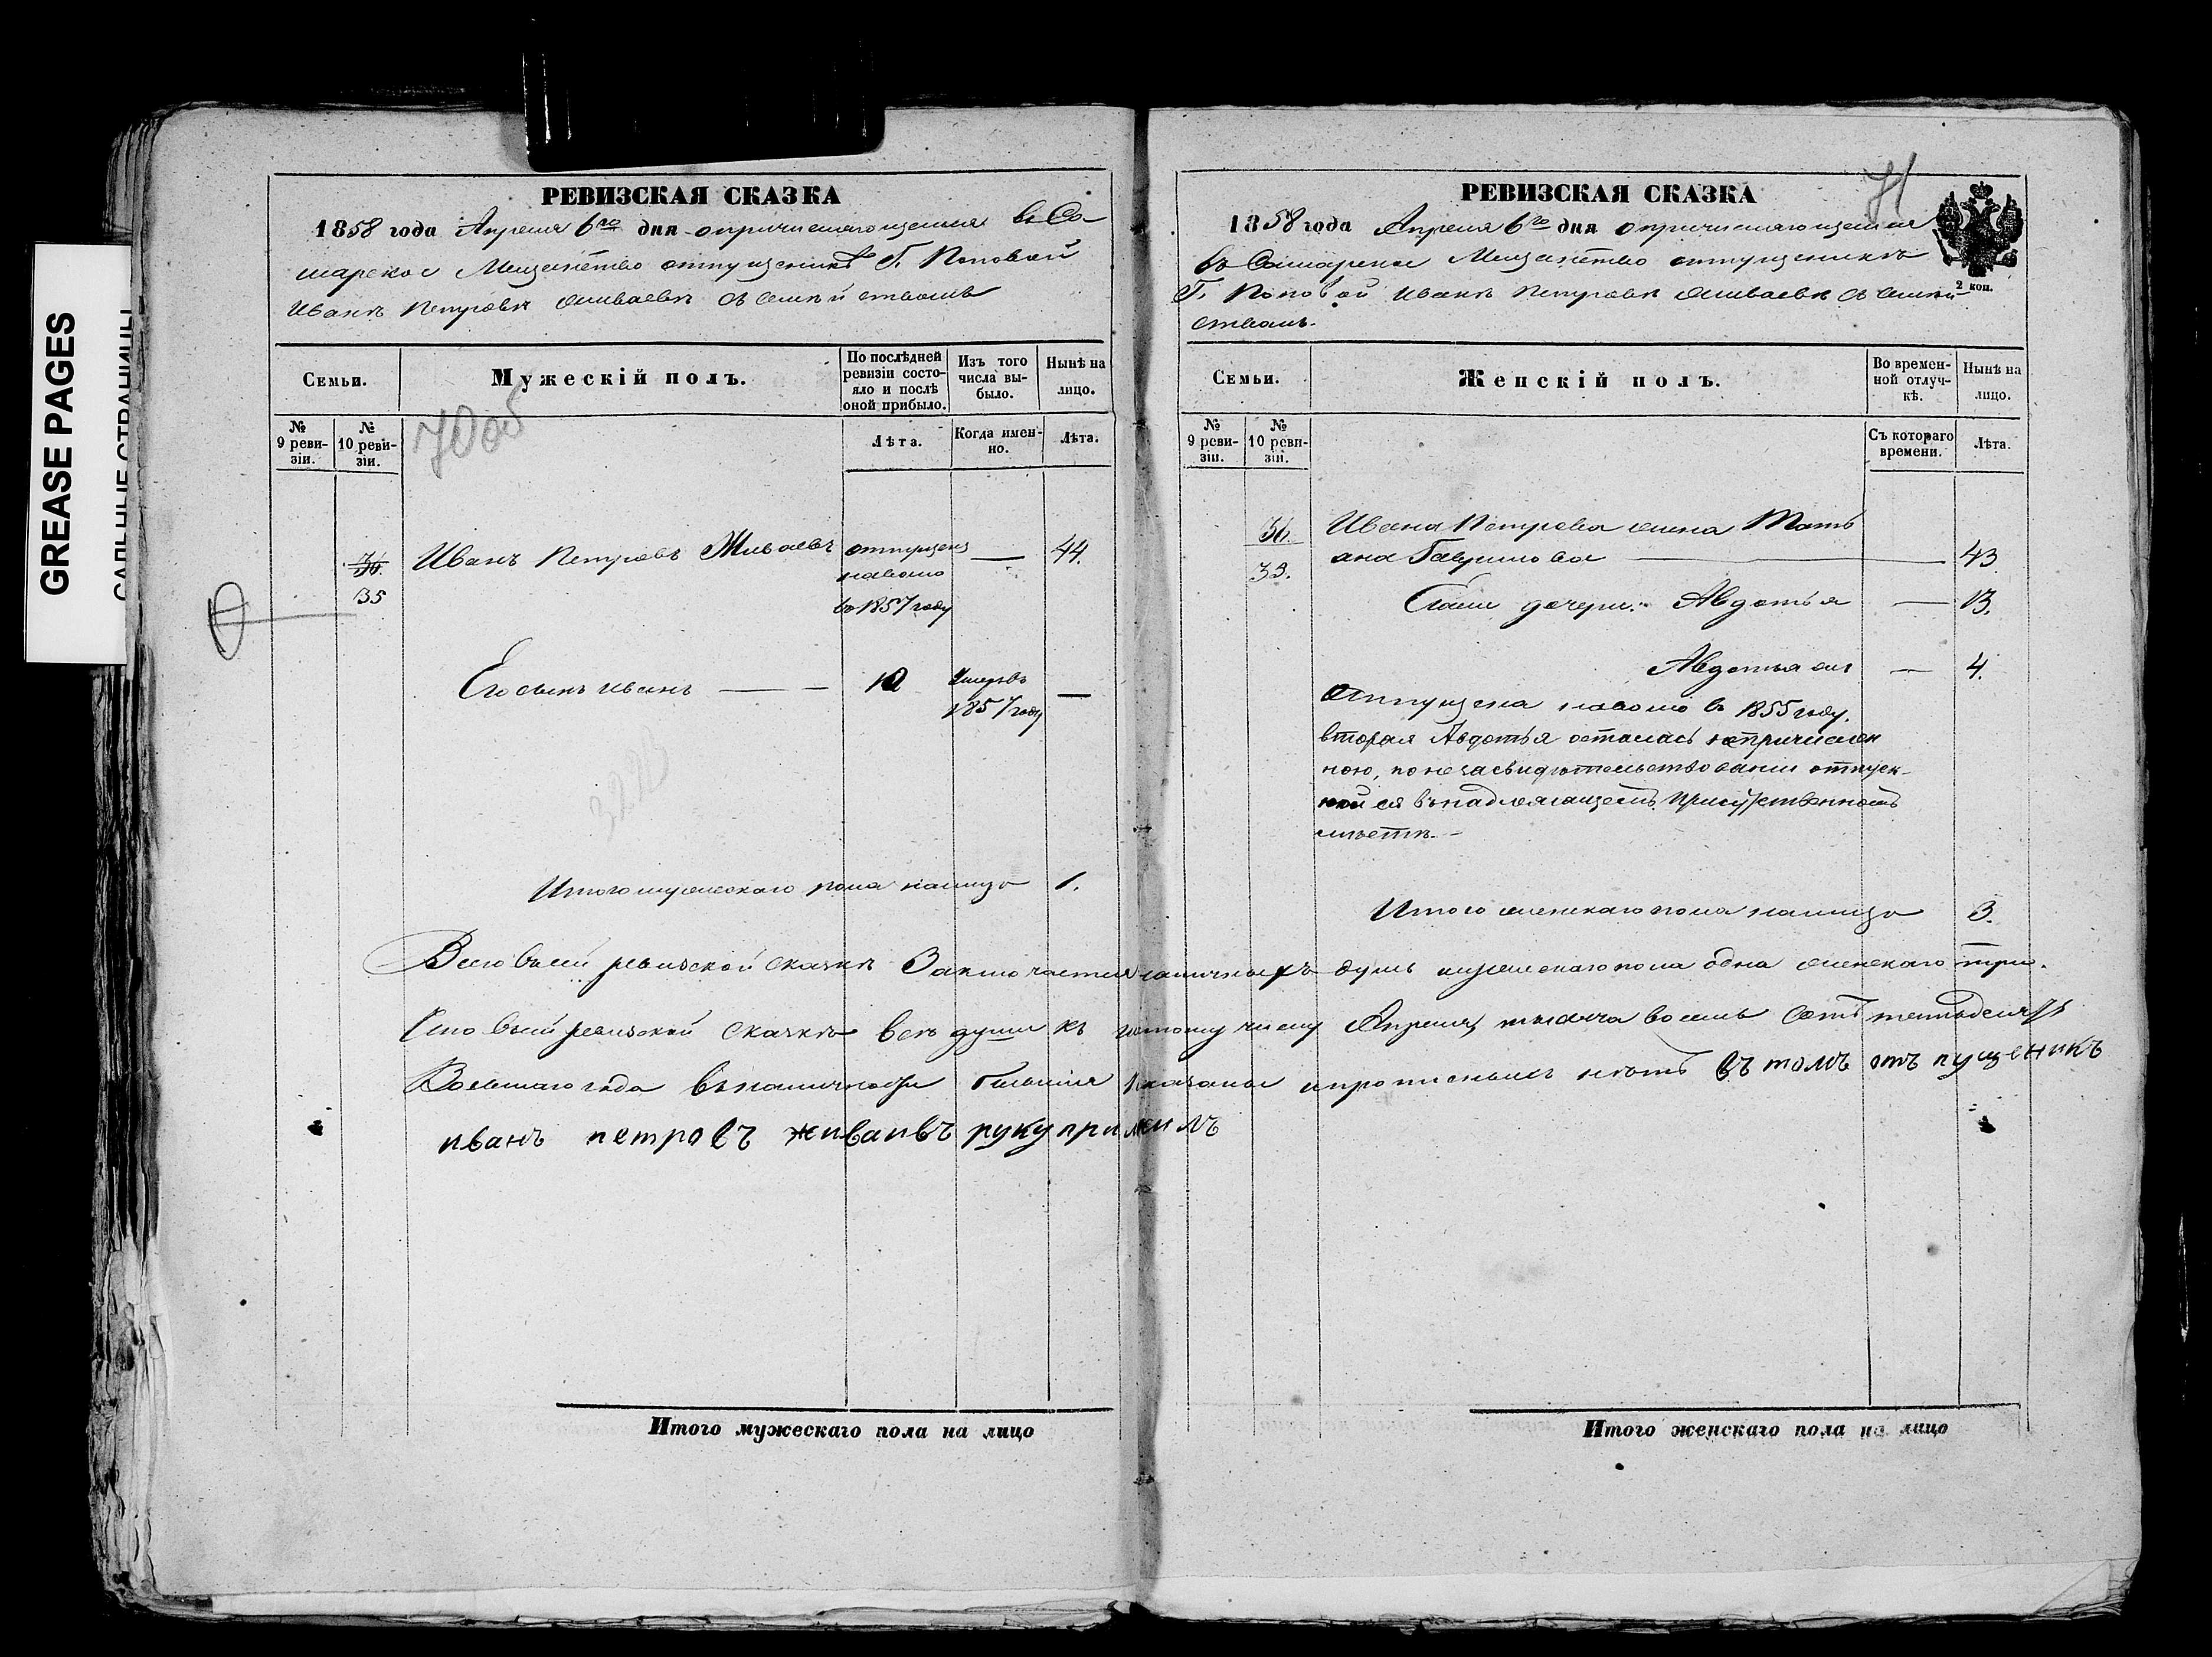 GREASE PAGES
САЛЬНЫЕ СТРАНИЦЫ
РЕВИЗСКАЯ СКАЗКА
1858 года Апреля 6го дня о причисляющемся въ Са-
марское Мещанство отпущеникѣ Г. Поповой
Иванѣ Петровѣ Живаевѣ съ Семействомъ
Семьи.
Мужескій полъ.
По послѣдней ревизіи состояло и послѣ оной прибыло.
Изъ того числа выбыло.
Нынѣ на лицо.
№ 9 ревизіи.
№ 10 ревизіи.
70 об
Лѣта.
Когда именно.
Лѣта.
36.
35
Иванъ Петровъ Живаевъ
отпущенъ
наволю
въ 1857 году
—
44.
Его сынъ Иванъ
10
Умеръ въ
1857 году
—
Итого мужескаго пола налицо 1.
РЕВИЗСКАЯ СКАЗКА
71
1858 года Апреля 6го дня о причисляющемся
въ Самарское Мещанство отпущеникѣ
Г. Поповой Иванѣ Петровѣ Живаевѣ съ Семей-
ствомъ.
2 коп.
Семьи.
Женскій полъ.
Во временной отлучкѣ.
Нынѣ на лицо.
№ 9 ревизіи.
№ 10 ревизіи.
Съ котораго времени.
Лѣта.
36.
35.
Ивана Петрова жена Тать
яна Гаврилова — 43
дочери: Авдотья — 13.
Авдотья — 4.
Отпущена наволю въ 1855 году.
вторая Авдотья осталась непричислен
ною, по незасвидѣтельствованіи отпуск-
ной ея въ надлежащемъ присутственномъ
мѣстѣ.-
Итого женскаго пола налицо 3.
Всего въ сей ревизской сказкѣ Заключается наличныхъ душъ мужескаго пола одна женскаго три.
Что въ сей ревизской сказкѣ всѣ души къ числу Апреля тысяча восемь сотъ пятьдесятъ
Восьмаго года въ наличности бывшія показаны и прописныхъ нѣтъ Въ томъ отъ пущеникъ
иванъ петровъ живаивъ руку прилжилъ
Итого мужескаго пола на лицо
Итого женскаго пола на лицо